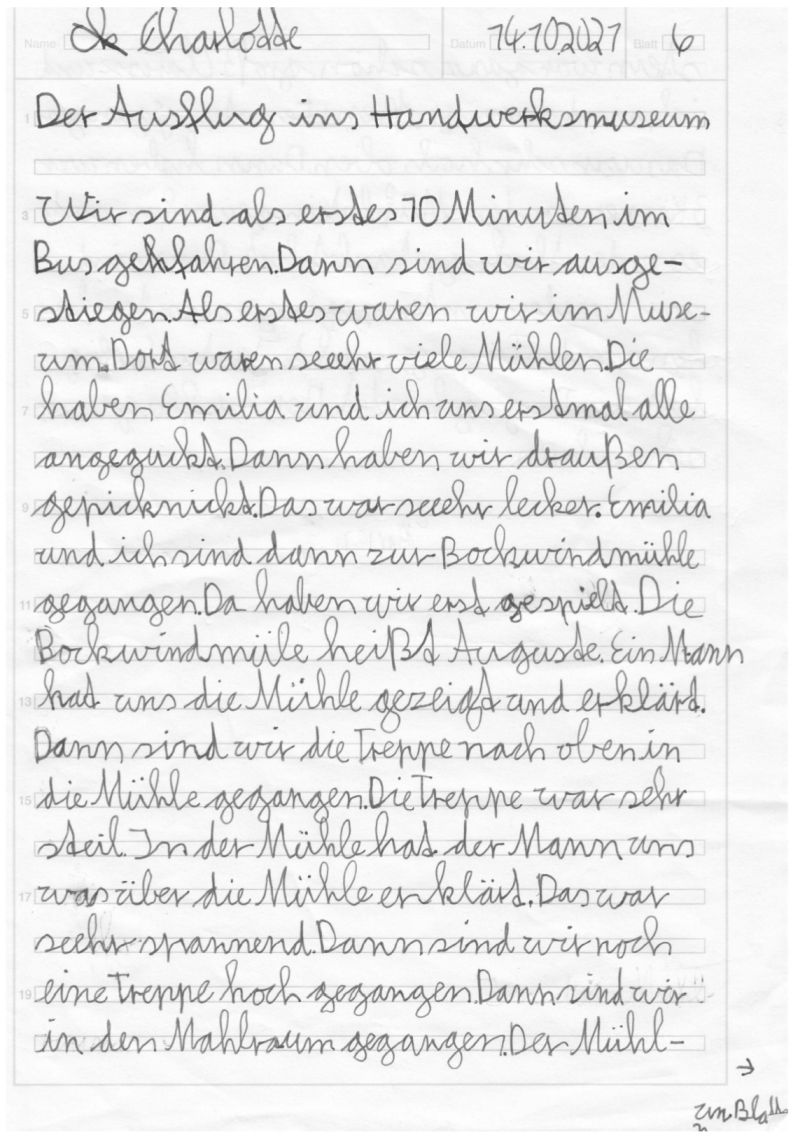 Name Charlotte Datum 14.10.2021 Blatt 6
Der Ausflug ins Handwerksmuseum
3 Wir sind als erstes 10 Minuten im
Bus gefahren. Dann sind wir ausge-
5 stiegen. Als erstes waren wir im Muse-
um. Dort waren seehr viele Mühlen. Die
7 haben Emilia und ich uns erstmal alle
angeguckt. Dann haben wir draußen
9 gepicknickt. Das war seehr lecker. Emilia
und ich sind dann zur Bockwindmühle
11 gegangen. Da haben wir erst gespielt. Die
Bockwindmüle heißt Auguste. Ein Mann
13 hat uns die Mühle gezeigt und erklärt.
Dann sind wir die Treppe nach oben in
15 die Mühle gegangen. Die Treppe war sehr
steil. In der Mühle hat der Mann uns
17 was über die Mühle erklärt. Das war
seehr spannend. Dann sind wir noch
19 eine Treppe hoch gegangen. Dann sind wir
in den Mahlraum gegangen. Der Mühl-
→